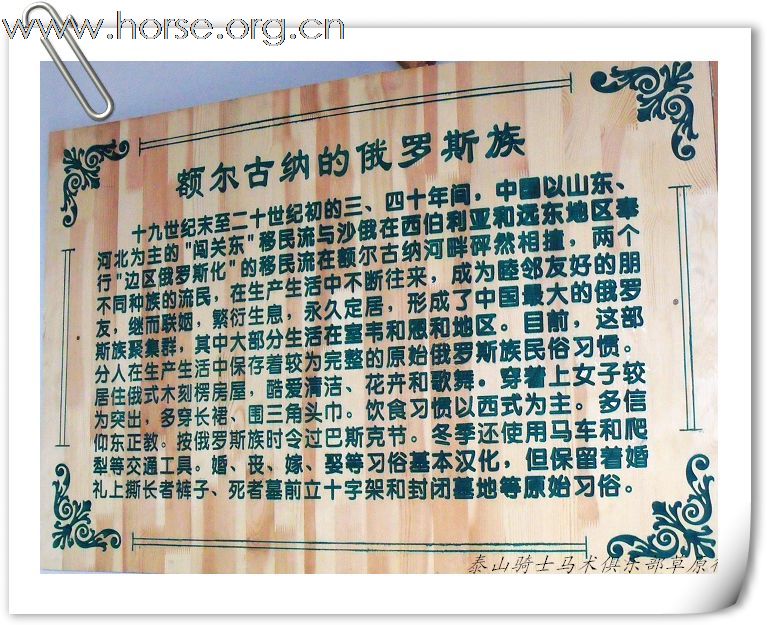 www.horse.org.cn
额尔古纳的俄罗斯族
十九世纪末至二十世纪初的三、四十年间，中国以山东、
河北为主的"闯关东"移民流与沙俄在西伯利亚和远东地区奉
行"边区俄罗斯化"的移民流在额尔古纳河畔砰然相撞，两个
不同种族的流民，在生产生活中不断往来，成为睦邻友好的朋
友，继而联姻，繁衍生息，永久定居，形成了中国最大的俄罗
斯族聚集群，其中大部分生活在室韦和恩和地区。目前，这部
分人在生产生活中保存着较为完整的原始俄罗斯族民俗习惯。
居住俄式木刻楞房屋，酷爱清洁、花卉和歌舞。穿着上女子较
为突出，多穿长裙、围三角头巾。饮食习惯以西式为主。多信
仰东正教。按俄罗斯族时令过巴斯克节。冬季还使用马车和爬
犁等交通工具。婚、丧、嫁、娶等习俗基本汉化，但保留着婚
礼上撕长者裤子、死者墓前立十字架和封闭墓地等原始习俗。
泰山骑士马术俱乐部草原